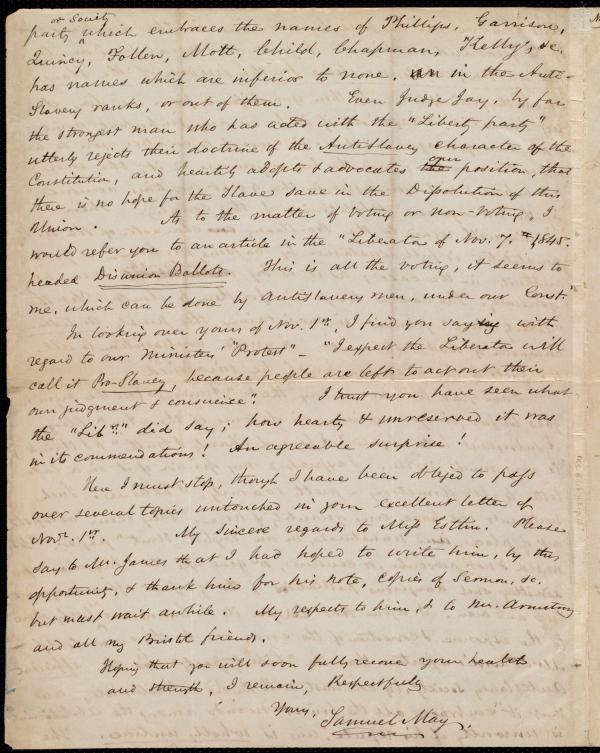 or Society
party which embraces the names of Phillips, Garrison,
Quincy, Follen, Mott, Child, Chapman, Kelly, &c.
has names which are inferior to none, in the Anti-
Slavery ranks, or out of them. Even Judge Jay, by far
the strongest man who has acted with the "Liberty party"
utterly rejects their doctrine of the AntiSlavery character of the
Constitution, and heartily adopts & advocates the our position, that
there is no hope for the Slave save in the Dissolution of this
Union. As to the matter of Voting or non-Voting, I
would refer you to an article in the "Liberator of Nov. 7. 1845.
headed Disunion Ballots. This is all the voting, it seems to
me, which can be done by Antislavery men, under our Const."
In looking over yours of Nov. 1st, I find you say with
regard to our Ministers' "Protest" – "I expect the Liberator will
call it Pro-Slavery, because people are left to act out their
own judgment & conscience". I trust you have seen what
the "Libr." did say; how hearty & unreserved it was
in its commendations! An agreeable surprise!
Here I must stop, though I have been obliged to pass
over several topics untouched in your excellent letter of
Novr. 1st. My sincere regards to Miss Esthn. Please
say to Mr. James that I had hoped to write him, by this
opportunity, & thank him for his note, copies of Sermon, &c.
but must wait awhile. My respects to him, & to Mr. Armstrong
and all my Bristol friends.
Hoping that you will soon fully recover your health
and strength, I remain, Respectfully
Yours, Samuel May,